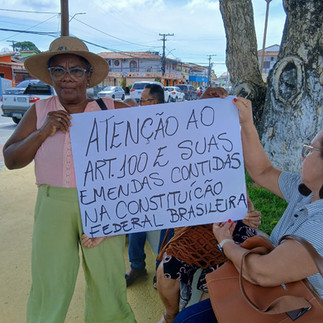 ATENÇÃO AO
ART.100 E SUAS
EMENDAS CONTIDAS
NA CONSTITUÍCÃO
FEDERAL BRASILEIRA